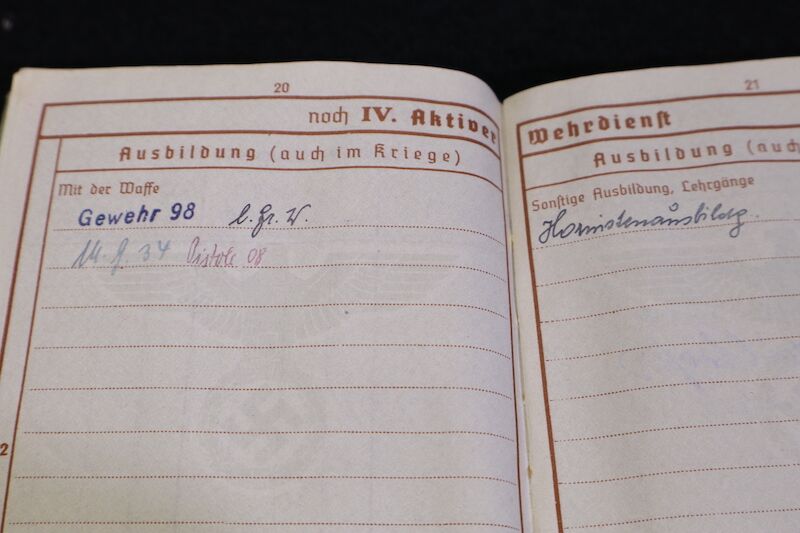 20
noch IV. Aktiver
Ausbildung (auch im Kriege)
Mit der Waffe
Gewehr 98 l. Gr. W.
M. G. 34 Pistole 08
2
21
Wehrdienst
Ausbildung (auch
Sonstige Ausbildung, Lehrgänge
Hornistenausbildg.